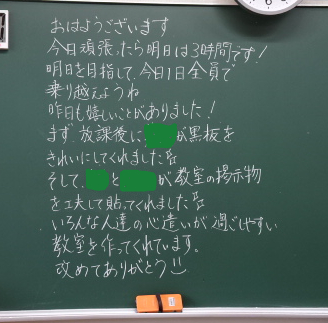 おはようございます
今日頑張ったら明日は3時間です!
明日を目指して、今日1日全員で
乗り越えようね
昨日も嬉しいことがありました!
まず、放課後に、が黒板を
きれいにしてくれました
そして、とが教室の掲示物
を工夫して貼ってくれました
いろんな人達の心遣いが過ごしやすい
教室を作ってくれています。
改めてありがとう